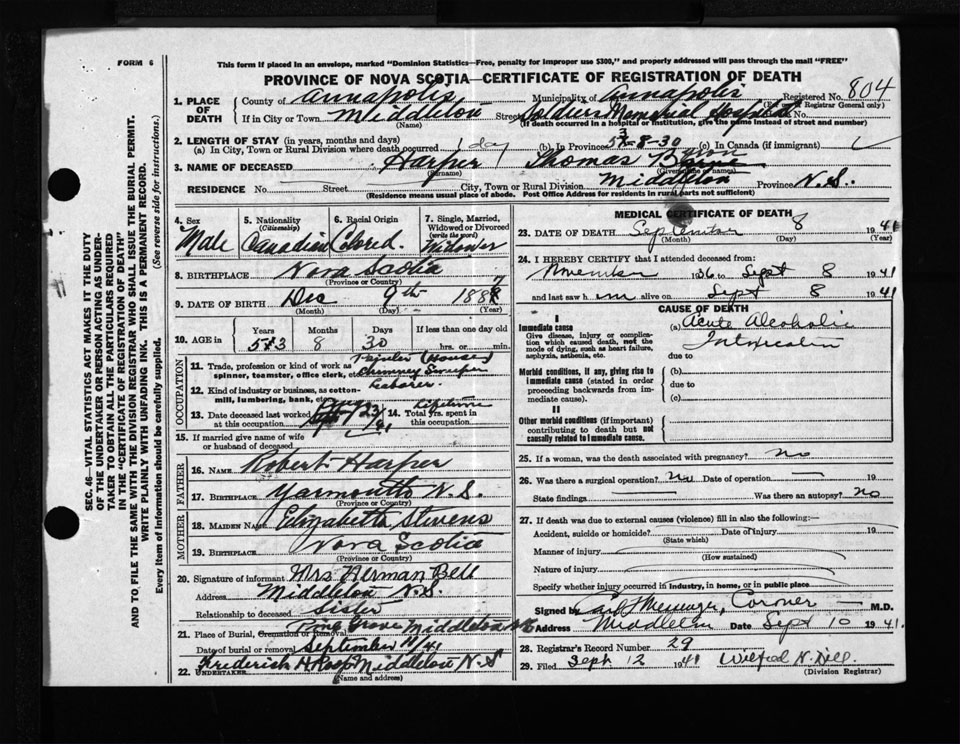 FORM 6
This form if placed in an envelope, marked "Dominion Statistics—Free, penalty for improper use $300," and properly addressed will pass through the mail "FREE"
PROVINCE OF NOVA SCOTIA—CERTIFICATE OF REGISTRATION OF DEATH
Registered No. 804
(For use of Registrar General only)
1. PLACE OF DEATH
County of Annapolis Municipality of Annapolis
If in City or Town Middleton Street Soldiers Memorial Hospital No.
(Name) (If death occurred in a hospital or institution, give the name instead of street and number)
2. LENGTH OF STAY (in years, months and days)
(a) In City, Town or Rural Division where death occurred 1 day (b) In Province 53-8-30 (c) In Canada (if immigrant)
3. NAME OF DECEASED Harper Thomas
(Surname) (Given name or names)
RESIDENCE No. Street City, Town or Rural Division Middleton Province N.S.
(Residence means usual place of abode. Post Office Address for residents in rural parts not sufficient)
4. Sex
Male
5. Nationality
(Citizenship)
Canadian
6. Racial Origin
Colored.
7. Single, Married, Widowed or Divorced
(write the word)
Widower
8. BIRTHPLACE Nova Scotia
(Province or Country)
9. DATE OF BIRTH Dec 9th 1887
(Month) (Day) (Year)
10. AGE in
Years Months Days If less than one day old
53 8 30 hrs. or min.
OCCUPATION
11. Trade, profession or kind of work as spinner, teamster, office clerk, etc. Painter (House) Chimney Sweeper
12. Kind of industry or business, as cotton-mill, lumbering, bank, etc. Laborer.
13. Date deceased last worked at this occupation Aug 23/41
14. Total yrs. spent in this occupation Lifetime
15. If married give name of wife or husband of deceased
FATHER
16. NAME Robert Harper
17. BIRTHPLACE Yarmouth N.S.
(Province or Country)
MOTHER
18. MAIDEN NAME Elizabeth Stevens
19. BIRTHPLACE Nova Scotia
(Province or Country)
20. Signature of informant Mrs Herman Bell
Address Middleton N.S.
Relationship to deceased Sister
21. Place of Burial, Cremation or Removal Pine Grove Middleton NS
Date of burial or removal September 11/41
22. UNDERTAKER Frederick A Roop Middleton N.S
(Name and address)
MEDICAL CERTIFICATE OF DEATH
23. DATE OF DEATH September 8 1941
(Month) (Day) (Year)
24. I HEREBY CERTIFY that I attended deceased from:
November 1936 to Sept 8 1941
and last saw him alive on Sept 8 1941
CAUSE OF DEATH
I
Immediate cause
Give disease, injury or complication which caused death, not the mode of dying, such as heart failure, asphyxia, asthenia, etc.
(a) Acute Alcoholic
Intoxication
due to
Morbid conditions, if any, giving rise to immediate cause (stated in order proceeding backwards from immediate cause).
(b)
due to
(c)
II
Other morbid conditions (if important) contributing to death but not causally related to immediate cause.
25. If a woman, was the death associated with pregnancy? no
26. Was there a surgical operation? No Date of operation 19
State findings Was there an autopsy? no
27. If death was due to external causes (violence) fill in also the following:—
Accident, suicide or homicide? Date of injury 19
(State which)
Manner of injury
(How sustained)
Nature of injury
Specify whether injury occurred in industry, in home, or in public place
Signed by Messenger, Coroner M.D.
Address Middleton Date Sept 10 1941.
28. Registrar's Record Number 29
29. Filed Sept 12 1941 Wilfred N. Dill.
(Division Registrar)
SEC. 46—VITAL STATISTICS ACT MAKES IT THE DUTY
OF THE UNDERTAKER OR PERSON ACTING AS UNDER-
TAKER TO OBTAIN ALL THE PARTICULARS REQUIRED
IN THE "CERTIFICATE OF REGISTRATION OF DEATH"
AND TO FILE THE SAME WITH THE DIVISION REGISTRAR WHO SHALL ISSUE THE BURIAL PERMIT.
WRITE PLAINLY WITH UNFADING INK. THIS IS A PERMANENT RECORD.
Every item of Information should be carefully supplied. (See reverse side for instructions.)